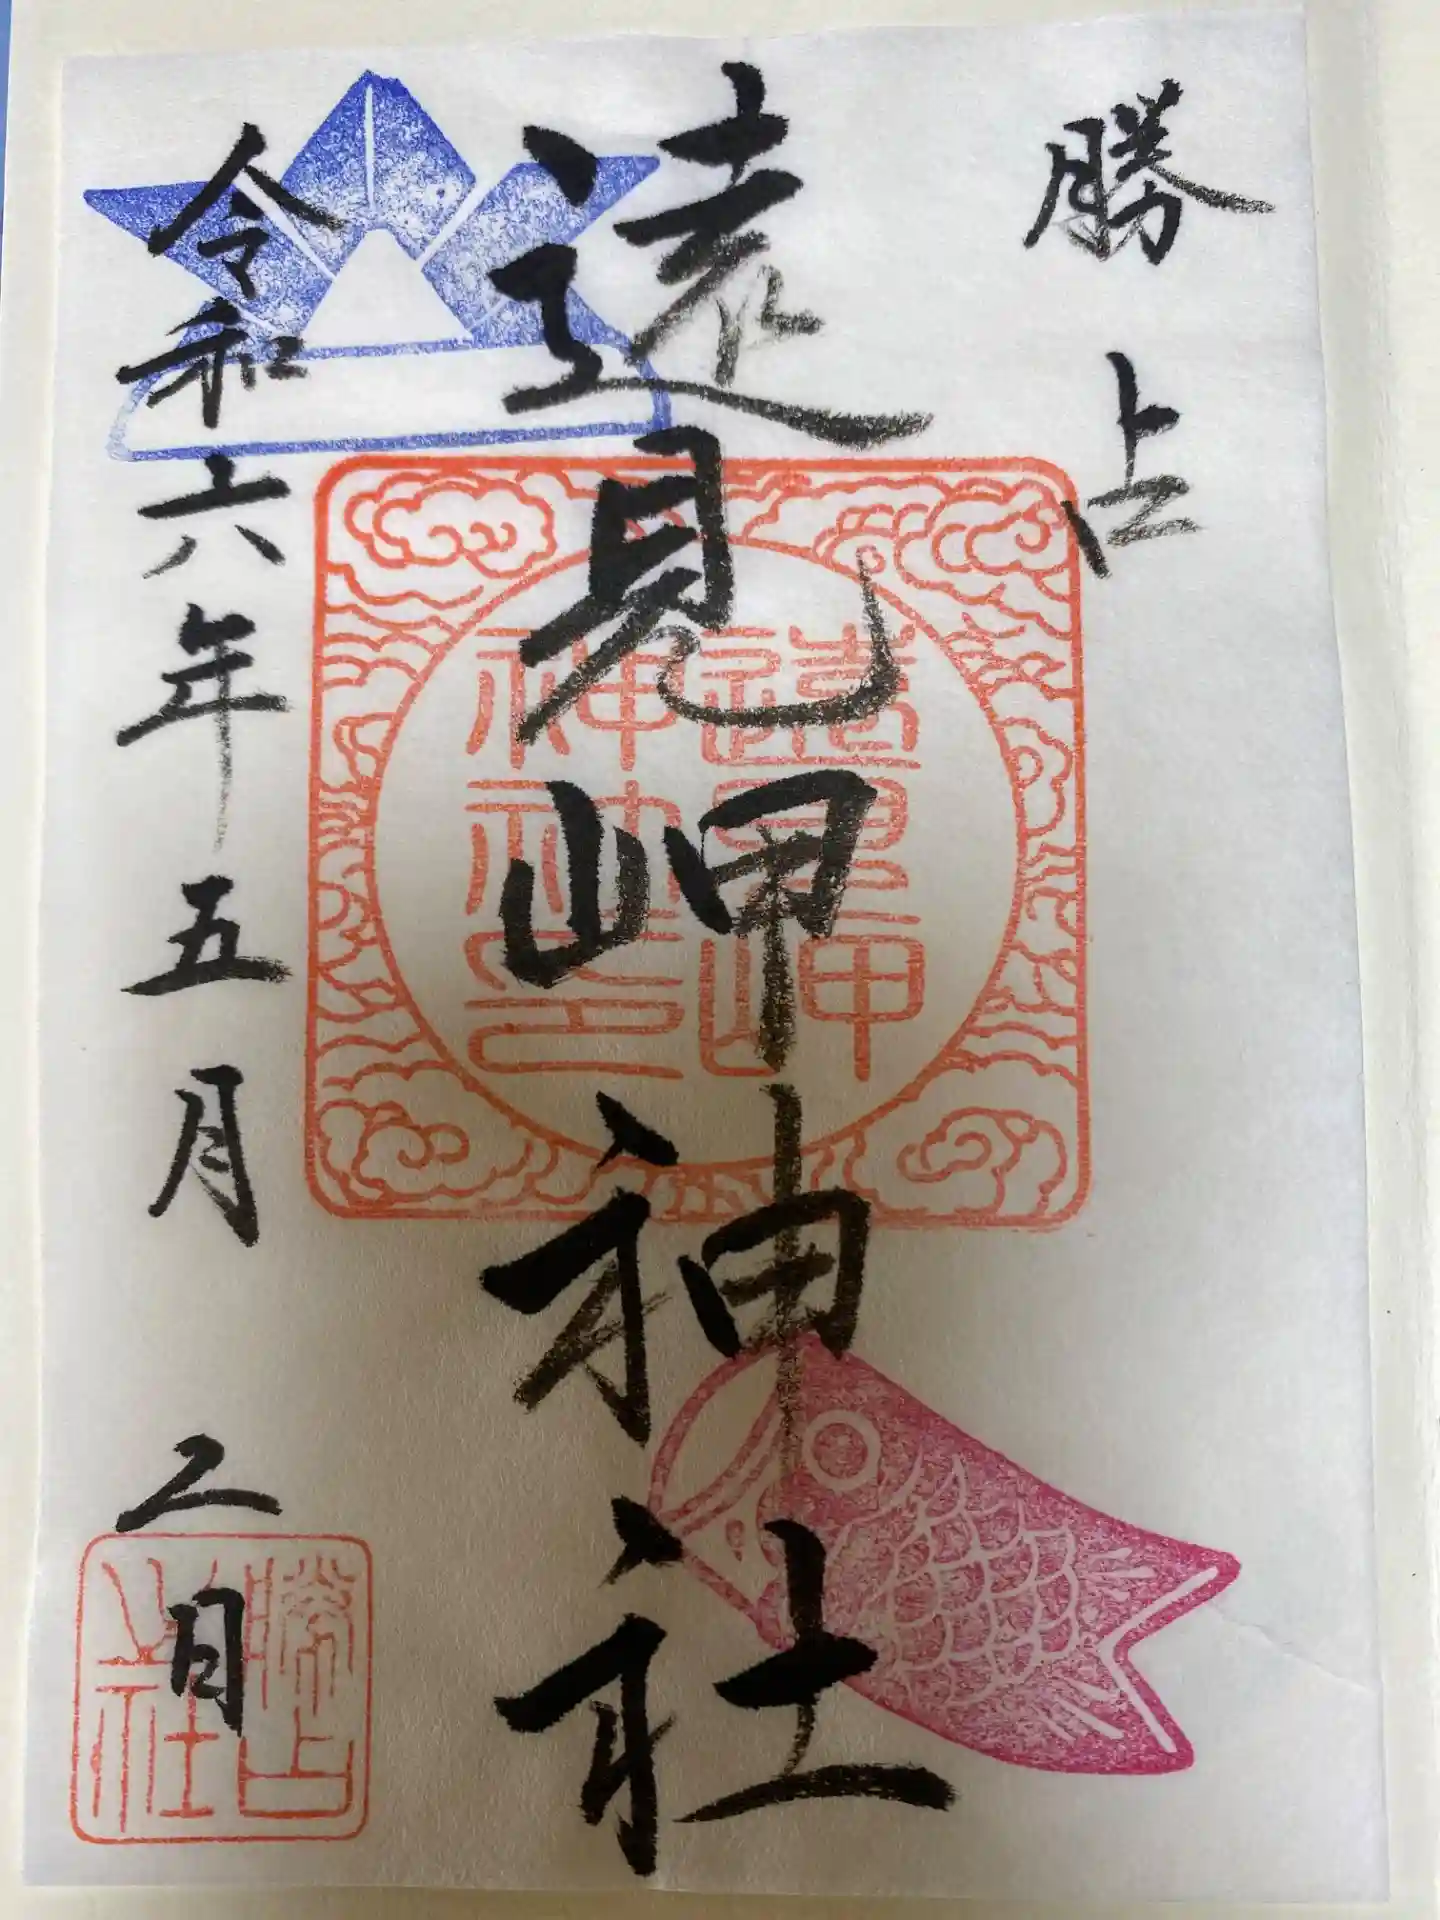 勝占
遠見岬神社
遠見岬
神社印
令和六年五月二日
勝占